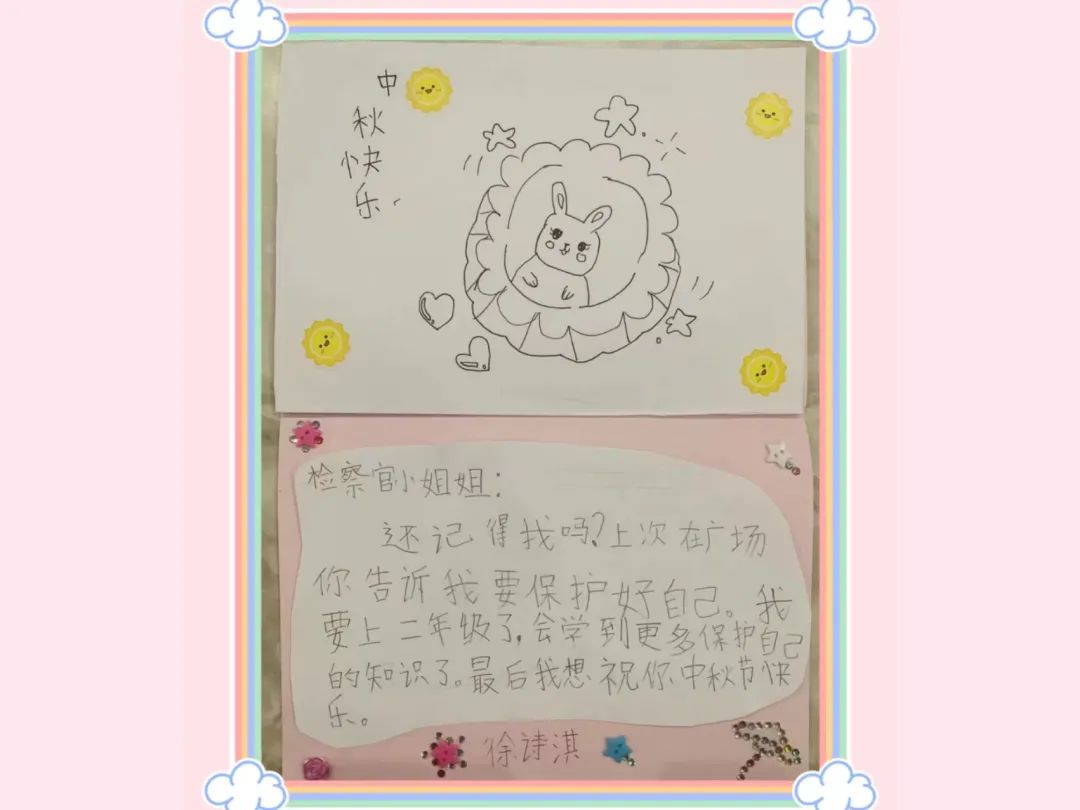 中秋快乐
检察官小姐姐：
还记得我吗？上次在广场
你告诉我要保护好自己。我
要上二年级了，会学到更多保护自己
的知识了。最后我想祝你中秋节快
乐。
徐诗淇